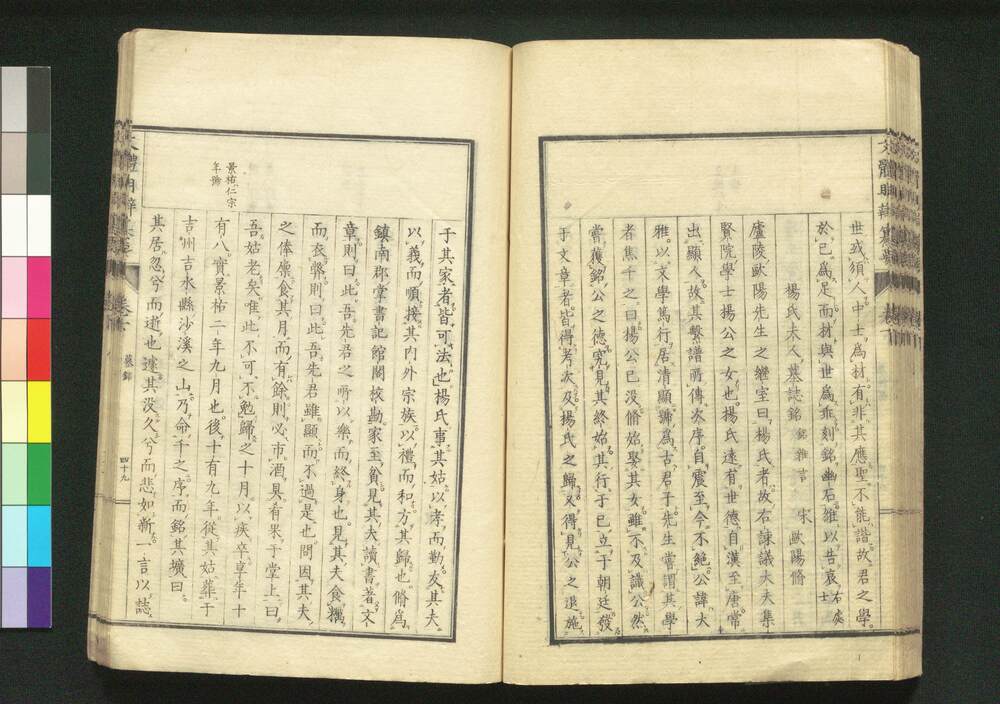 世或須人中士爲材有非其應聖不能諧故君之學
於已爲足而材與世爲乖刻銘幽石雖以告哀右處士
楊氏夫人墓誌銘 銘雜言 宋 歐陽脩
廬陵歐陽先生之繼室曰楊氏者故右諫議大夫集
賢院學士楊公之女也楊氏遠有世德自漢至唐常
出顯人故其繫譜所傳次序自震至今不絕公諱大
雅以文學篤行居清顯號爲古君子先生嘗謂其學
者焦千之曰楊公已沒脩始娶其女雖不及識公然
嘗獲銘公之德究見其終始其行于已立于朝廷發
于文章者皆得考次及楊氏之歸又得見公之退施
于其家者皆可法也楊氏事其姑以孝而勤友其夫
以義而順接其內外宗族以禮而和方其歸也脩爲
鎮南郡掌書記館閣校勘家至貧見其夫讀書著文
章則曰此吾先君之所以樂而終身也見其夫食糲
而衣弊則曰此吾先君雖顯而不過是也間因其夫
之俸廩食其月而有餘則必市酒具肴果于堂上曰
吾姑老矣唯此不可不勉歸之十月以疾卒享年十
有八實景祐二年九月也後十有九年從其姑葬于
吉州吉水縣沙溪之山乃命千之序而銘其壙曰
其居忽兮而逝也遽其沒久兮而悲如新一言以誌
景祐仁宗
年號
墓銘
四十九